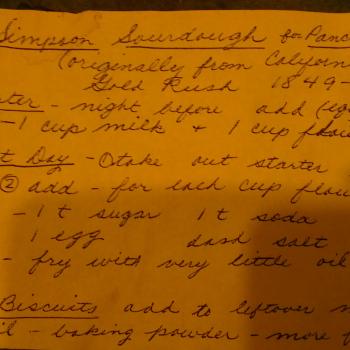 Simpson Sourdough for Panc
(originally from Californ
Gold Rush 1849-
ter - night before add (eq
-1 cup milk + 1 cup flour
t Day - ① take out starter
② add - for each cup flou
- 1 t sugar 1 t soda
1 egg dash salt
- fry with very little oil
Biscuits add to leftover m
il - baking powder - more f